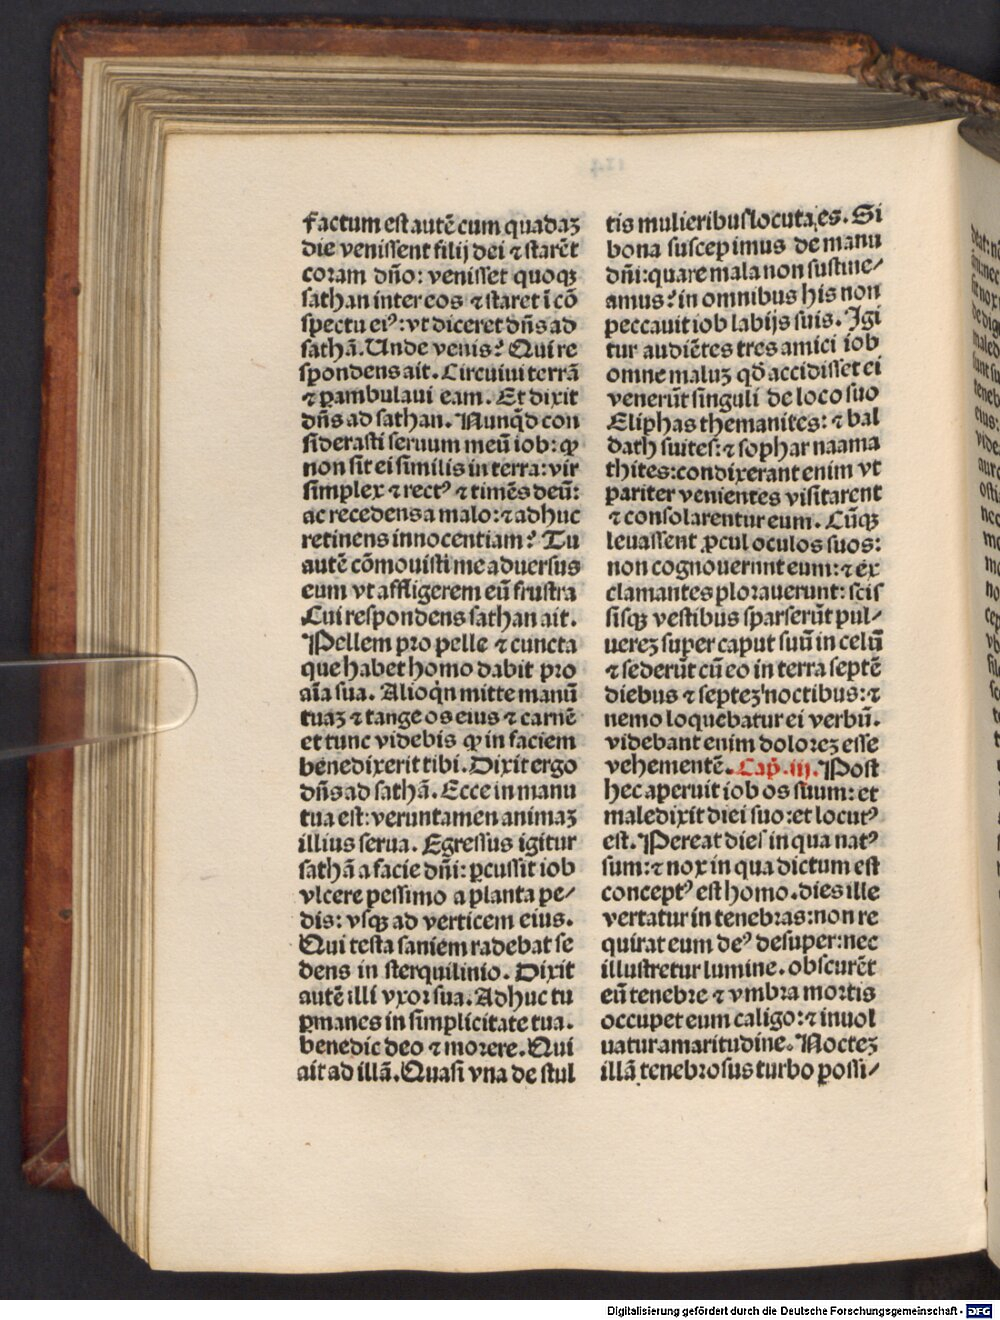 Factum est autē cum quadaʒ
die venissent filij dei ⁊ starēt
coram dño: venisset quoqꝫ
sathan inter eos ⁊ staret ī cō
spectu eiꝰ: vt diceret dñs ad
sathā. Unde venis? Qui re
spondens ait. Circuiui terrā
⁊ ꝑambulaui eam. Et dixit
dñs ad sathan. Nunqͥd con
siderasti seruum meū iob: ꝙ
non sit ei similis in terra: vir
simplex ⁊ rectꝰ ⁊ timēs deū:
ac recedens a malo: ⁊ adhuc
retinens innocentiam? Tu
autē cōmouisti me aduersus
eum vt affligerem eū frustra
Cui respondens sathan ait.
Pellem pro pelle ⁊ cuncta
que habet homo dabit pro
aīa sua. Alioqͥn mitte manū
tuaʒ ⁊ tange os eius ⁊ carnē
et tunc videbis ꝙ in faciem
benedixerit tibi. Dixit ergo
dñs ad sathā. Ecce in manu
tua est: veruntamen animaʒ
illius serua. Egressus igitur
sathā a facie dñi: ꝑcussit iob
vlcere pessimo a planta pe/
dis: vsqꝫ ad verticem eius.
Qui testa saniem radebat se
dens in sterquilinio. Dixit
autē illi vxor sua. Adhuc tu
ꝑmanes in simplicitate tua.
benedic deo ⁊ morere. Qui
ait ad illā. Quasi vna de stul
tis mulieribus locuta es. Si
bona suscepimus de manu
dñi: quare mala non sustine/
amus? in omnibus his non
peccauit iob labijs suis. Igi
tur audiētes tres amici iob
omne maluʒ qd̄ accidisset ei
venerūt singuli de loco suo
Eliphas themanites: ⁊ bal
dath suites: ⁊ sophar naama
thites: condixerant enim vt
pariter venientes visitarent
⁊ consolarentur eum. Cūqꝫ
leuassent ꝓcul oculos suos:
non cognouerunt eum: ⁊ ex
clamantes plorauerunt: scis
sisqꝫ vestibus sparserūt pul/
uereʒ super caput suū in celū
⁊ sederūt cū eo in terra septē
diebus ⁊ septeʒ noctibus: ⁊
nemo loquebatur ei verbū.
videbant enim doloreʒ esse
vehementē. Cap̄. iij. Post
hec aperuit iob os suum: et
maledixit diei suo: et locutꝰ
est. Pereat dies in qua natꝰ
sum: ⁊ nox in qua dictum est
conceptꝰ est homo. dies ille
vertatur in tenebras: non re
quirat eum deꝰ desuper: nec
illustretur lumine. obscurēt
eū tenebre ⁊ vmbra mortis
occupet eum caligo: ⁊ inuol
uatur amaritudine. Nocteʒ
illā tenebrosus turbo possi/
Digitalisierung gefördert durch die Deutsche Forschungsgemeinschaft - DFG